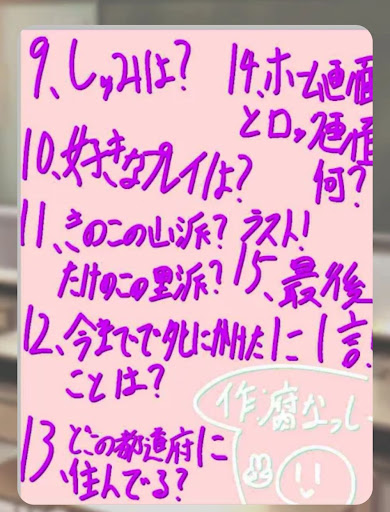 9、しゅみは?
10、好きなプレイは?
11、きのこの山派?
たけのこの里派?
12、今までで死にかけた
ことは?
13、どこの都道府に
住んでる?
14、ホーム画面
とロック画面
何?
ラスト!
15、最後
に1言!
作:腐なっし